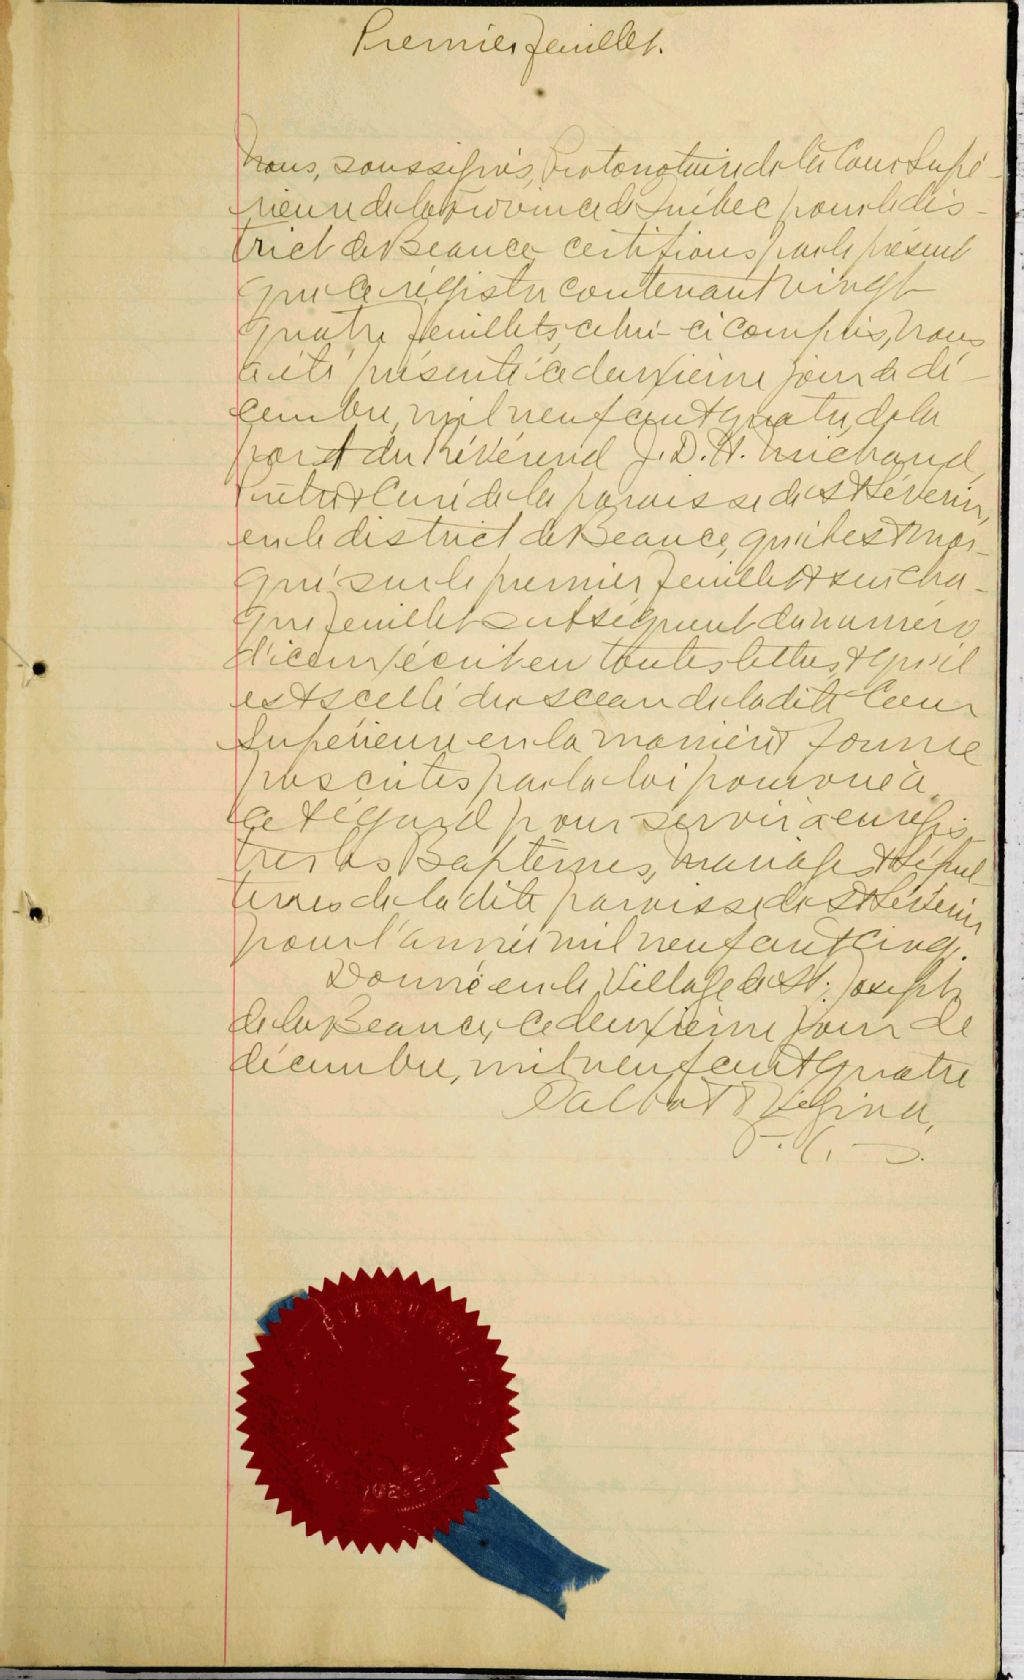 Premier feuillet.
Nous, soussignés, Protonotaire de la Cour Supé-
rieure de la Province de Québec pour le dis-
trict de Beauce certifions par le présent
que ce régistre contenant vingt
quatre feuillets, celui-ci compris, nous
a été présenté ce deuxième jour de dé-
cembre, mil neuf cent quatre, de la
part du Révérend J. D. H. Michaud,
Prêtre & Curé de la paroisse de St Séverin,
en le district de Beauce, qu'il est mar-
qué sur le premier feuillet & sur cha-
que feuillet subséquent du numéro
d'iceux écrit en toutes lettres & qu'il
est scellé du sceau de la dite Cour
Supérieure en la manière & forme
prescrites par la loi pourvue à
cet égard pour servir à enregis
trer les Baptêmes, Mariages & Sépul-
tures de la dite paroisse de St Séverin
pour l'année mil neuf cent cinq.
Donné en le Village de St. Joseph
de la Beauce, ce deuxième jour de
décembre, mil neuf cent quatre
Talbot & Vézina,
P. C. S.